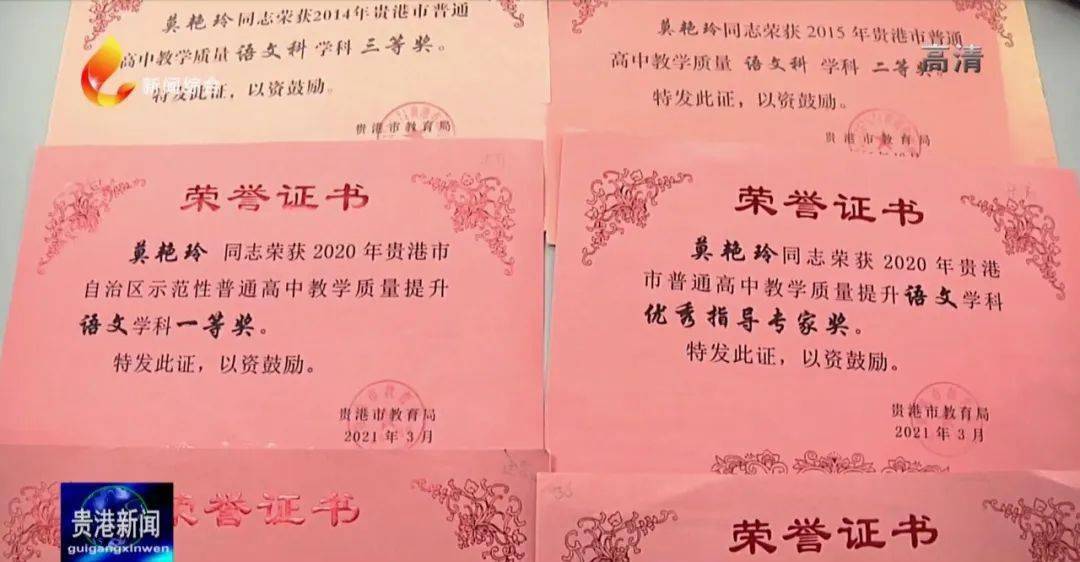 莫艳玲同志荣获2014年贵港市普通
高中教学质量 语文科 学科 三等奖。
特发此证，以资鼓励。
贵港市教育局
莫艳玲同志荣获 2015 年贵港市普通
高中教学质量 语文科 学科 二等奖。
特发此证，以资鼓励。
贵港市教育局
高清
新闻综合
荣誉证书
莫艳玲 同志荣获 2020 年贵港市
自治区示范性普通高中教学质量提升
语文学科一等奖。
特发此证，以资鼓励。
贵港市教育局
2021 年 3 月
荣誉证书
莫艳玲同志荣获 2020 年贵港
市普通高中教学质量提升语文学科
优秀指导专家奖。
特发此证，以资鼓励。
贵港市教育局
2021 年 3 月
荣誉证书
荣誉证书
贵港新闻
guigangxinwen